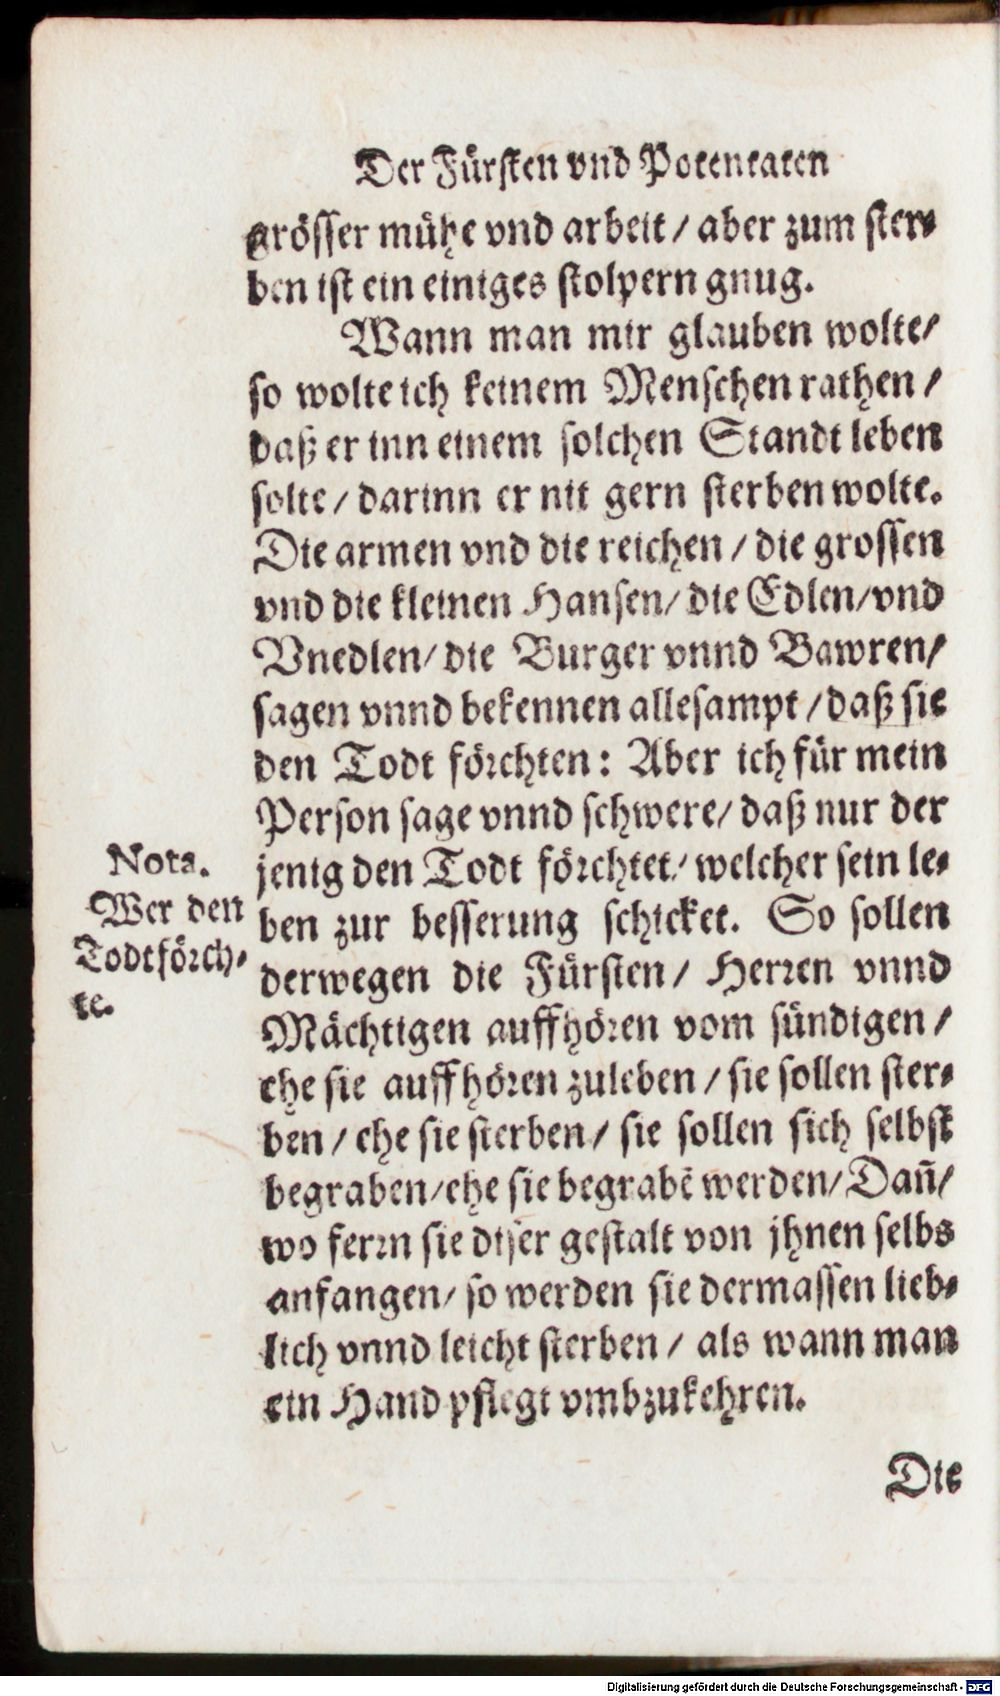 Der Fürsten vnd Potentaten
grösser mühe vnd arbeit / aber zum ster-
ben ist ein einiges stolpern gnug.
Wann man mir glauben wolte/
so wolte ich keinem Menschen rathen /
daß er inn einem solchen Standt leben
solte / darinn er nit gern sterben wolte.
Die armen vnd die reichen / die grossen
vnd die kleinen Hansen / die Edlen / vnd
Vnedlen / die Burger vnnd Bawren/
sagen vnnd bekennen allesampt / daß sie
den Todt förchten: Aber ich für mein
Person sage vnnd schwere / daß nur der
jenig den Todt förchtet / welcher sein le-
ben zur besserung schicket. So sollen
derwegen die Fürsten / Herren vnnd
Mächtigen auffhören vom sündigen /
ehe sie auffhören zuleben / sie sollen ster-
ben / ehe sie sterben / sie sollen sich selbst
begraben / ehe sie begrabē werden / Dañ/
wo ferrn sie diser gestalt von jhnen selbs
anfangen / so werden sie dermassen lieb-
lich vnnd leicht sterben / als wann man
ein Hand pflegt vmbzukehren.
Nota.
Wer den
Todt förch-
te.
Die
Digitalisierung gefördert durch die Deutsche Forschungsgemeinschaft - DFG